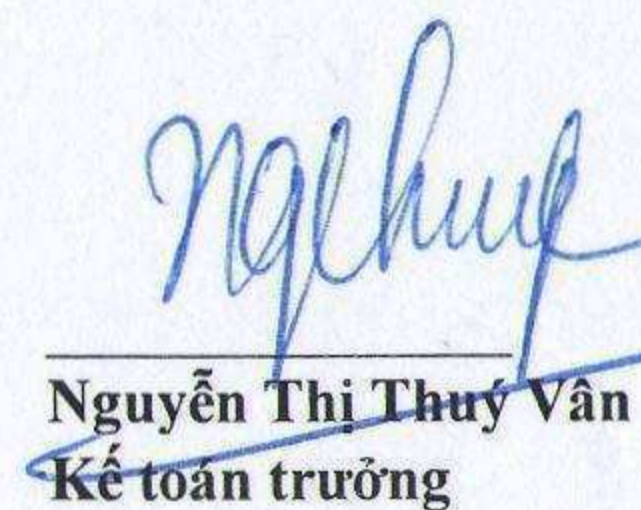 Nguyễn Thị Thuý Vân
Kế toán trưởng